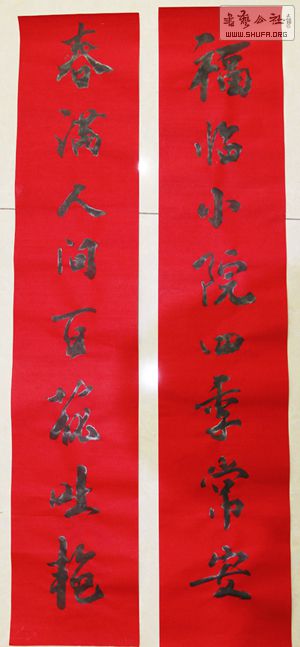 書藝公社
WWW.SHUFA.ORG
春满人间百花吐艳
福临小院四季常安